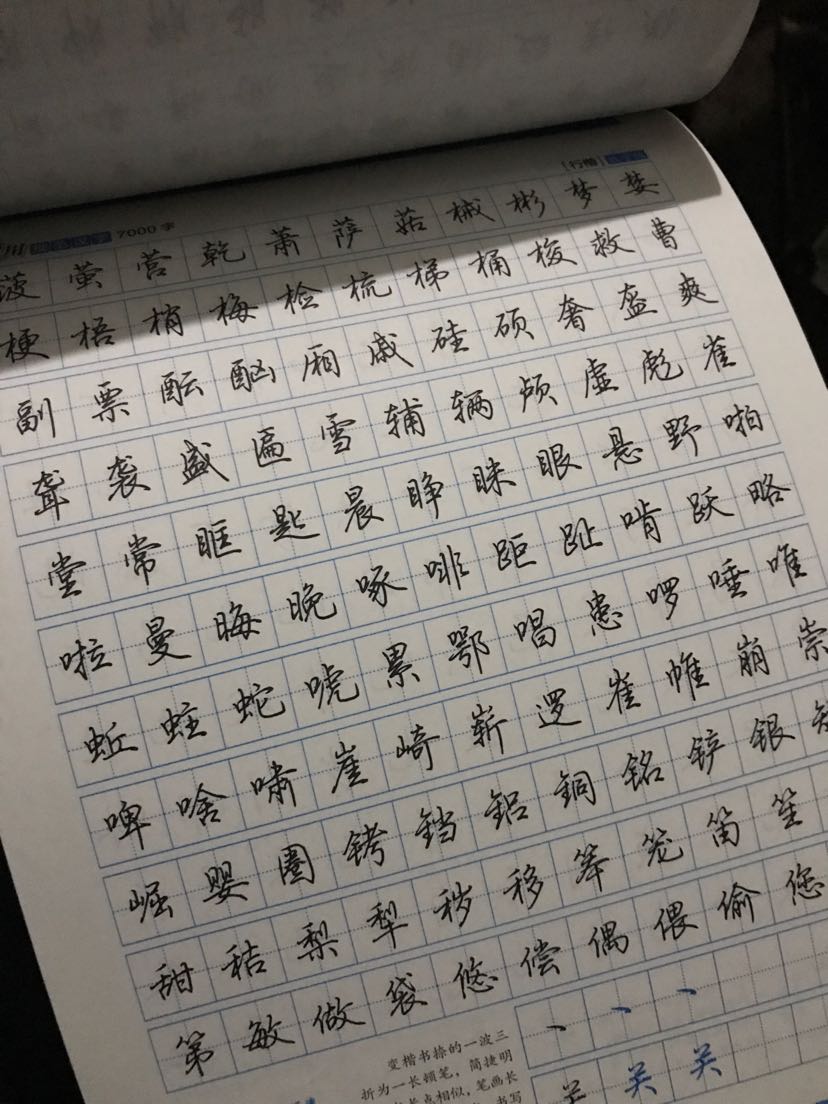 [行楷]
7000字
菠萤营乾萧萨菇械彬梦婪
梗梧梢梅检梳梯桶梭救曹
副票酝酗厢戚硅硕奢盔爽
聋袭盛匾雪辅辆颅虚彪雀
堂常眶匙晨睁眯眼悬野啪
啦曼晦晚啄啡距趾啃跃略
蚯蛀蛇唬累鄂唱患啰唾唯
啤啥啸崖崎崭逻崔帷崩崇
崛婴圈铐铛铝铜铭铲银
甜秸梨犁秽移笨笼笛笙
第敏做袋悠偿偶偎偷您
变楷书捺的一波三
折为一长顿笔，简捷明
长点相似，笔画长
书写
关 关 关